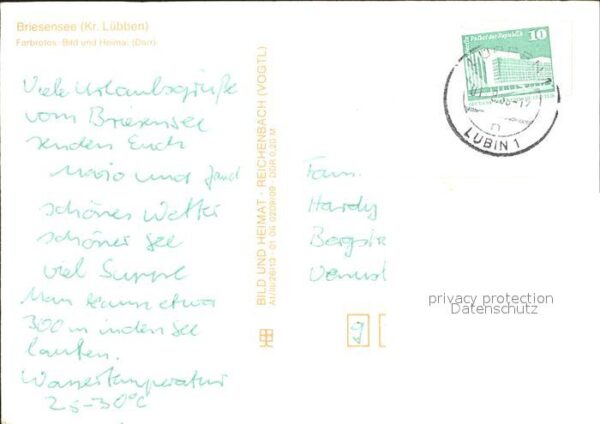 Briesensee (Kr. Lübben)
Farbfotos: Bild und Heimat (Darr)
Viele Urlaubsgrüße
vom Briesensee
senden Euch
Mario und
schönes Wetter
schöner See
viel Suppe
Man kann etwa
300 m in den See
laufen.
Wassertemperatur
25-30°C
BILD UND HEIMAT · REICHENBACH (VOGTL)
A1/III/26/13 · 01 06 0209/09 · DDR 0,20 M
Palast der Republik
10
LUBIN 1
n
Fam.
Hardy
Bergstr
privacy protection
Datenschutz
9